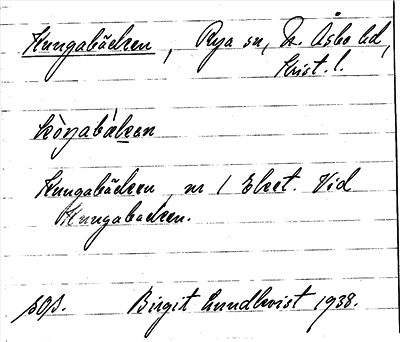 Kungabäcken, Rya sn, N. Åsbo hd,
Krist. l.
Kungabäcken nr 1 Eket. Vid
Kungabacken.
sos. Birgit Lundkvist 1938.